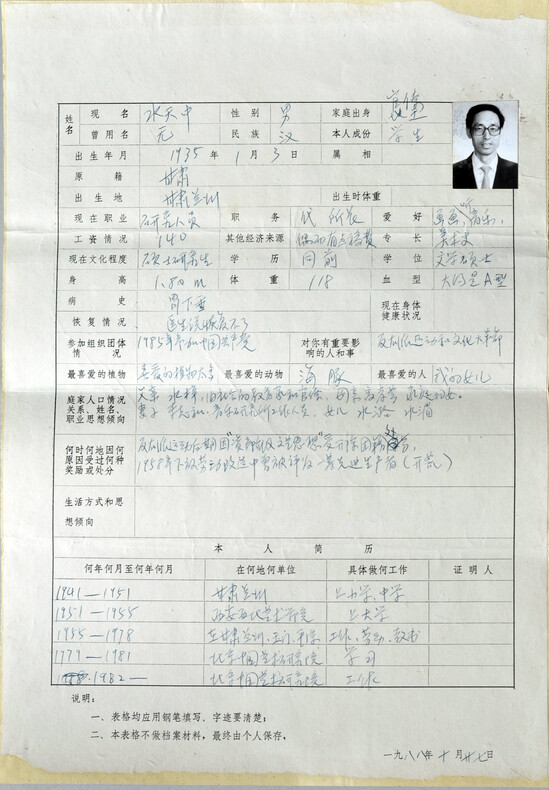 姓名 现名 水天中 性别 男 家庭出身
曾用名 无 民族 汉 本人成份 学生
出生年月 1935年1月3日 属相
原籍 甘肃
出生地 甘肃兰州 出生时体重
现在职业 研究人员 职务 代所长 爱好
工资情况 140 其他经济来源 偶而有点稿费 专长 美术史
现在文化程度 硕士研究生 学历 同前 学位 文学硕士
身高 1.80m 体重 118 血型 大约是A型
病史 胃下垂 现在身体健康状况
恢复情况 医生说恢复不了
参加组织团体情况 1985年参加中国共产党 对你有重要影响的人和事 反右派运动和文化大革命
最喜爱的植物 喜爱的植物太多 最喜爱的动物 海豚 最喜爱的人 我的女儿
庭家人口情况 父亲 水梓
关系、姓名、职业思想倾向 妻子 女儿
何时何地因何原因受过何种奖励或处分 反右派运动后期因“资产阶级文艺思想”受开除团籍处分,
1958年下放劳动改造中曾被评为一等先进生产者(开荒)
生活方式和思想倾向
本人简历
何年何月至何年何月 在何地何单位 具体做何工作 证明人
1941—1951 甘肃兰州 上小学、中学
1951—1955 西安西北艺术学院 上大学
1955—1978 在甘肃兰州、 工作、劳动、教书
1979—1981 北京中国艺术研究院 学习
1982— 北京中国艺术研究院 工作
说明：
一、表格均应用钢笔填写．字迹要清楚；
二、本表格不做档案材料，最终由个人保存。
一九八八年十月廿七日